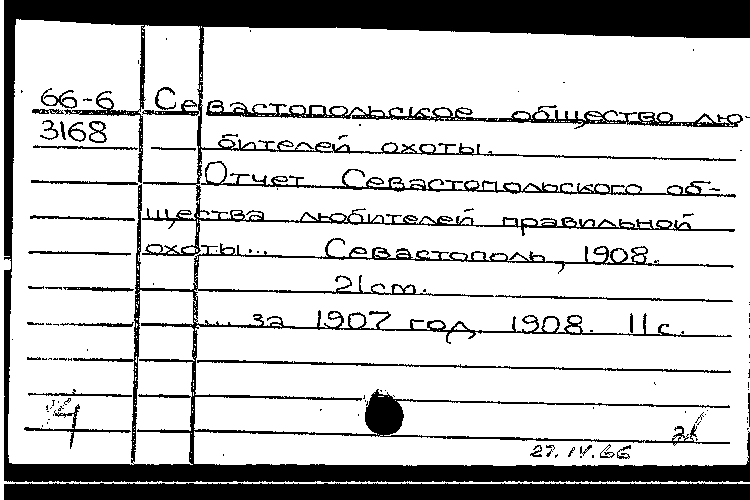 66-6 Севастопольское общество лю-
3168 бителей охоты.
Отчет Севастопольского об-
щества любителей правильной
охоты... Севастополь, 1908.
21 см.
... за 1907 год. 1908. 11 с.
27.IV.66